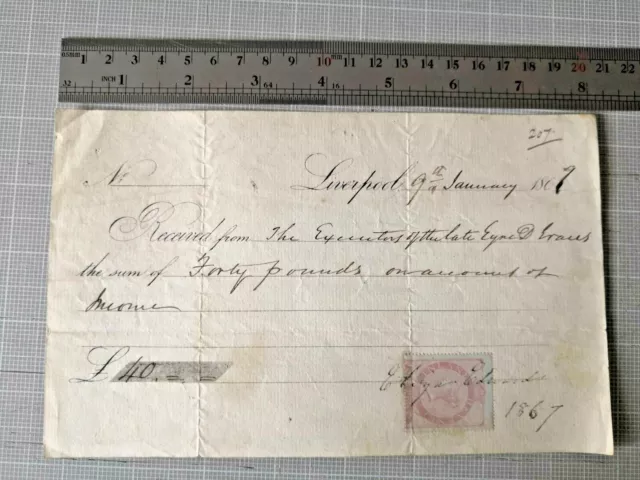 mm 1 2 3 4 5 6 7 8 9 10 11 12 13 14 15 16 17 18 19 20 21 22
32 INCH 1 2 3 64 4 16 5 6 7 8
207
No
Liverpool 9th January 1867
Received from The Executors of the late Eyre D Evans
the sum of Forty pounds on account of
Income
£ 40. = . =
1867